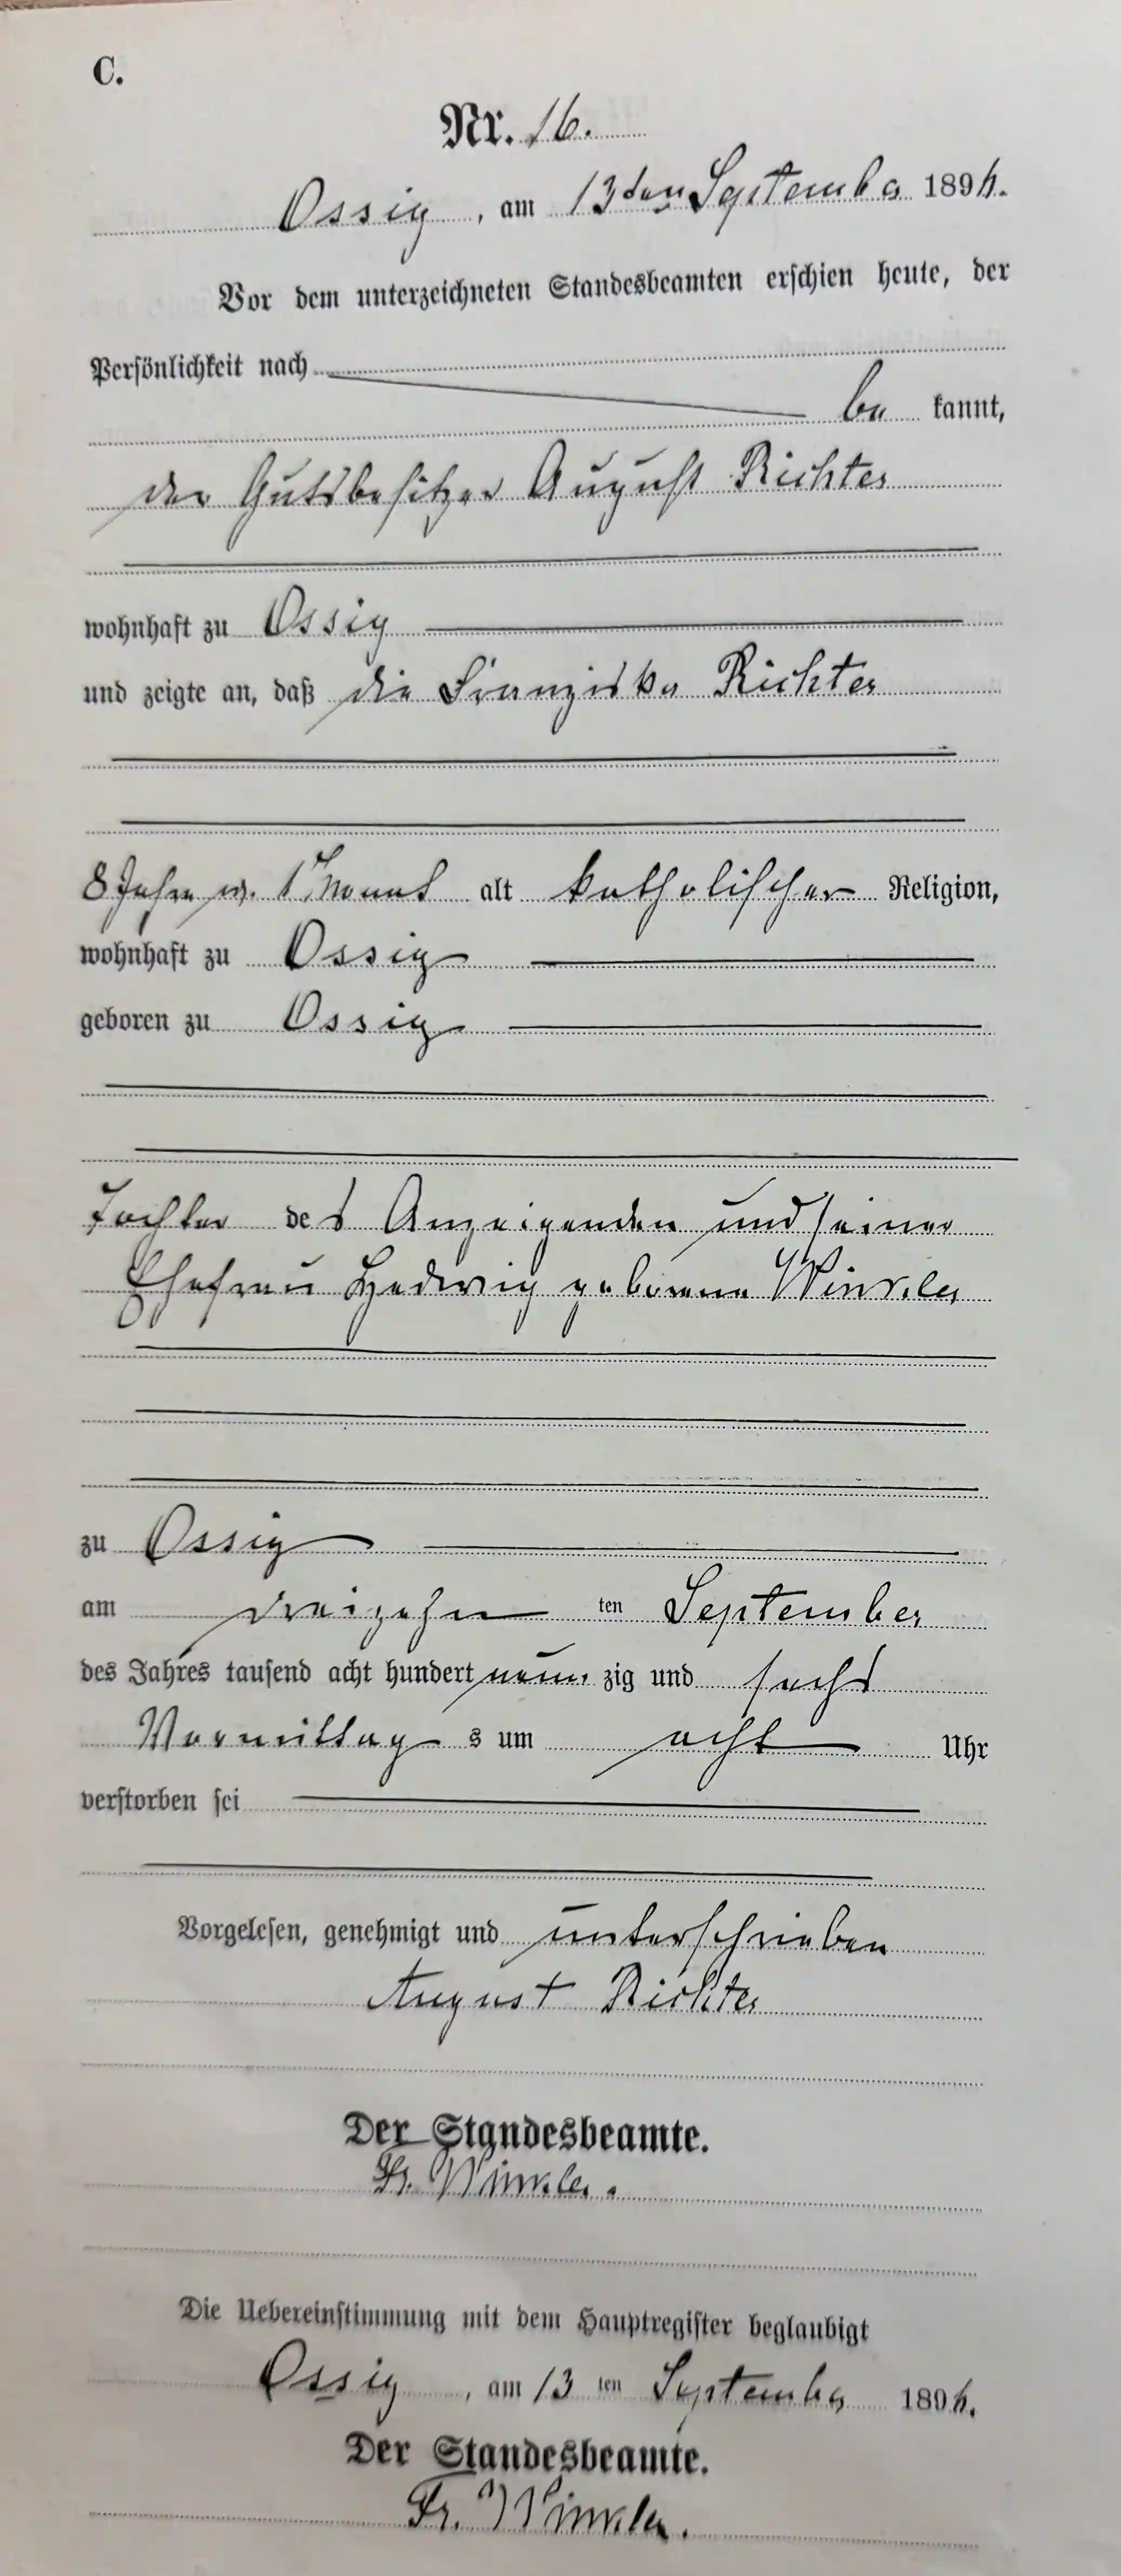 C.
Nr. 16.
Ossig, am 13ten September 1896.
Vor dem unterzeichneten Standesbeamten erschien heute, der
Persönlichkeit nach
bekannt,
der Gutsbesitzer August Richter
wohnhaft zu Ossig
und zeigte an, daß die Franziska Richter
8 Jahre u. 1 Monat alt katholischer Religion,
wohnhaft zu Ossig
geboren zu Ossig
Tochter des Anzeigenden und seiner
Ehefrau Hedwig geborene Winkler
zu Ossig
am dreizehnten September
des Jahres tausend acht hundert neunzig und sechs
Vormittags um acht Uhr
verstorben sei
Vorgelesen, genehmigt und unterschrieben
August Richter
Der Standesbeamte.
Fr. Winkler.
Die Uebereinstimmung mit dem Hauptregister beglaubigt
Ossig, am 13ten September 1896.
Der Standesbeamte.
Fr. Winkler.